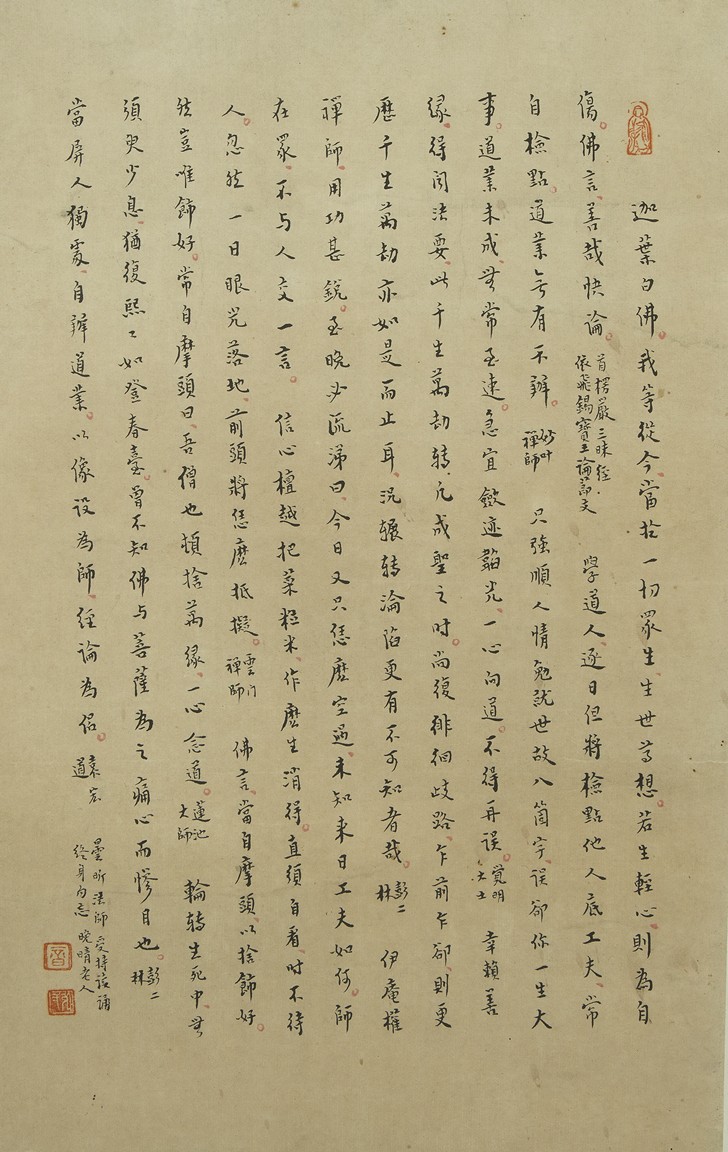 迦葉白佛我等從今當於一切眾生生世尊想若生輕心則為自
傷佛言善哉快論
首楞嚴三昧經
依飛錫寶王論節文
學道人逐日但將檢點他人底工夫常
自檢點道業無有不辦
妙叶
禪師
只強順人情勉就世故八箇字誤卻你一生大
事道業未成無常至速急宜斂迹韜光一心向道不得再誤
覺明
大士
幸賴善
緣得聞法要此千生萬劫轉凡成聖之时尚復徘徊歧路乍前乍卻則更
歷千生萬劫亦如是而止耳況輾轉淪陷更有不可知者哉
彭二
林
伊庵權
禪師用功甚銳至晚必流涕曰今日又只恁麽空過未知來日工夫如何師
在眾不与人交一言
信心檀越把菜粒米作麽生消得直須自看时不待
人忽然一日眼光落地前頭將恁麽抵擬
雲门
禪師
佛言當自摩頭以捨飾好
然豈唯飾好常自摩頭曰吾僧也頓捨萬緣一心念道
蓮池
大師
輪轉生死中無
須臾少息猶復熙々如登春臺曾不知佛与菩薩為之痛心而慘目也
彭二
林
當屏人獨處自辦道業以像設為師經論為侶
袁宏
道
曇昕法師受持讀誦
終身勿忘 晚晴老人